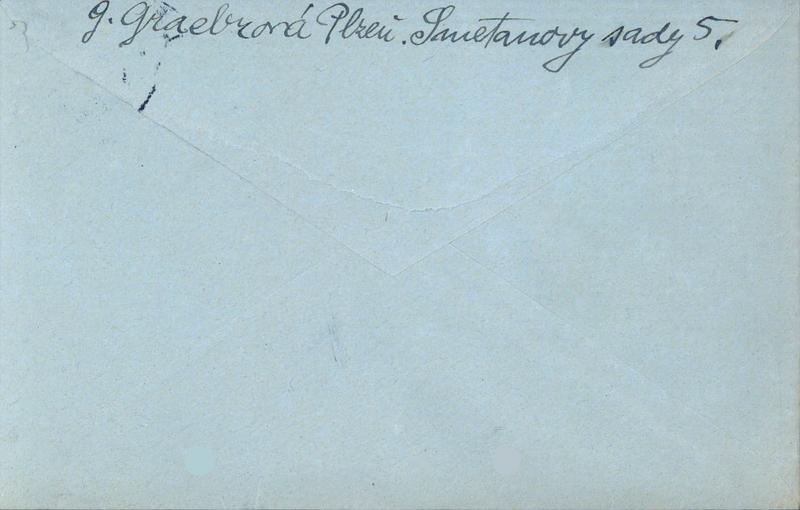 G. Graebrová Plzeň. Smetanovy sady 5.